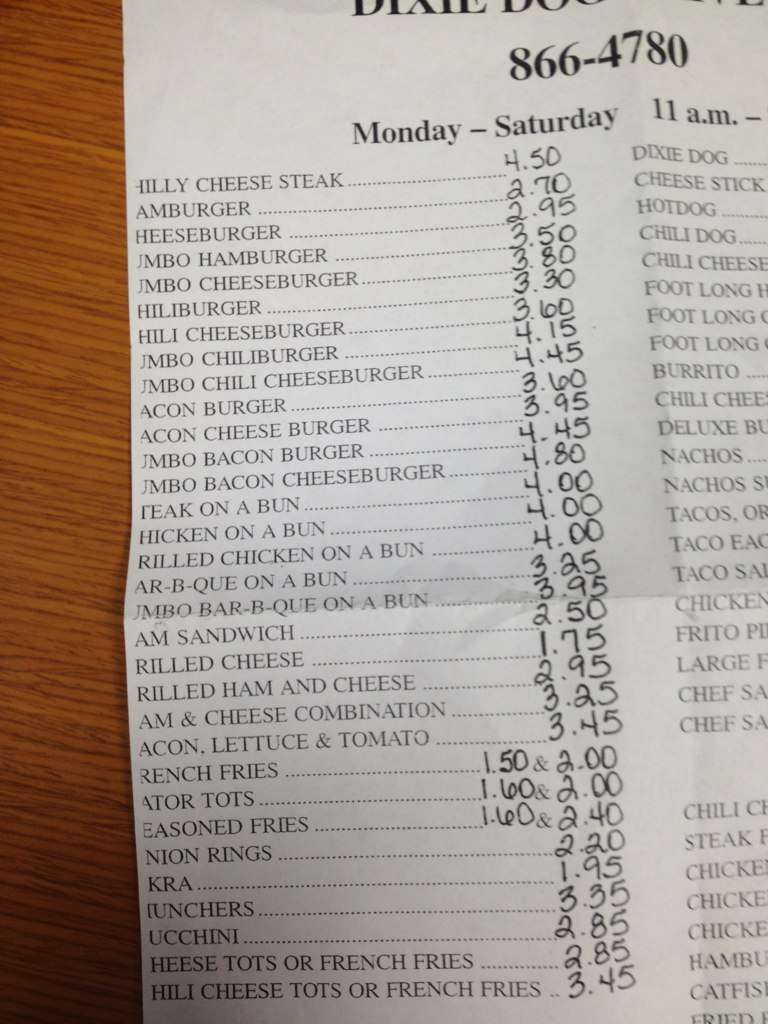 DIXIE DOG
866-4780
Monday – Saturday 11 a.m. –
HILLY CHEESE STEAK 4.50
AMBURGER 2.70
HEESEBURGER 2.95
UMBO HAMBURGER 3.50
UMBO CHEESEBURGER 3.80
HILIBURGER 3.30
HILI CHEESEBURGER 3.60
UMBO CHILIBURGER 4.15
UMBO CHILI CHEESEBURGER 4.45
ACON BURGER 3.60
ACON CHEESE BURGER 3.95
UMBO BACON BURGER 4.45
UMBO BACON CHEESEBURGER 4.80
TEAK ON A BUN 4.00
HICKEN ON A BUN 4.00
RILLED CHICKEN ON A BUN 4.00
AR-B-QUE ON A BUN 3.25
UMBO BAR-B-QUE ON A BUN 3.95
AM SANDWICH 2.50
RILLED CHEESE 1.75
RILLED HAM AND CHEESE 2.95
AM & CHEESE COMBINATION 3.25
ACON, LETTUCE & TOMATO 3.45
RENCH FRIES 1.50 & 2.00
ATOR TOTS 1.60 & 2.00
EASONED FRIES 1.60 & 2.40
NION RINGS 2.20
KRA 1.95
UNCHERS 3.35
UCCHINI 2.85
HEESE TOTS OR FRENCH FRIES 2.85
HILI CHEESE TOTS OR FRENCH FRIES 3.45
DIXIE DOG
CHEESE STICK
HOTDOG
CHILI DOG
CHILI CHEESE
FOOT LONG H
FOOT LONG C
FOOT LONG
BURRITO
CHILI CHEES
DELUXE BU
NACHOS
NACHOS SU
TACOS, OR
TACO EAC
TACO SAL
CHICKEN
FRITO PI
LARGE F
CHEF SA
CHEF SA
CHILI CH
STEAK F
CHICKE
CHICKE
CHICKE
HAMBU
CATFIS
FRIED